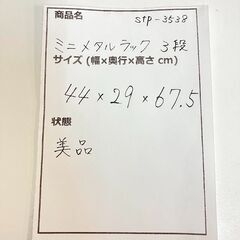 商品名
stp-3538
ミニメタルラック 3段
サイズ (幅×奥行×高さ cm)
44×29×67.5
状態
美品